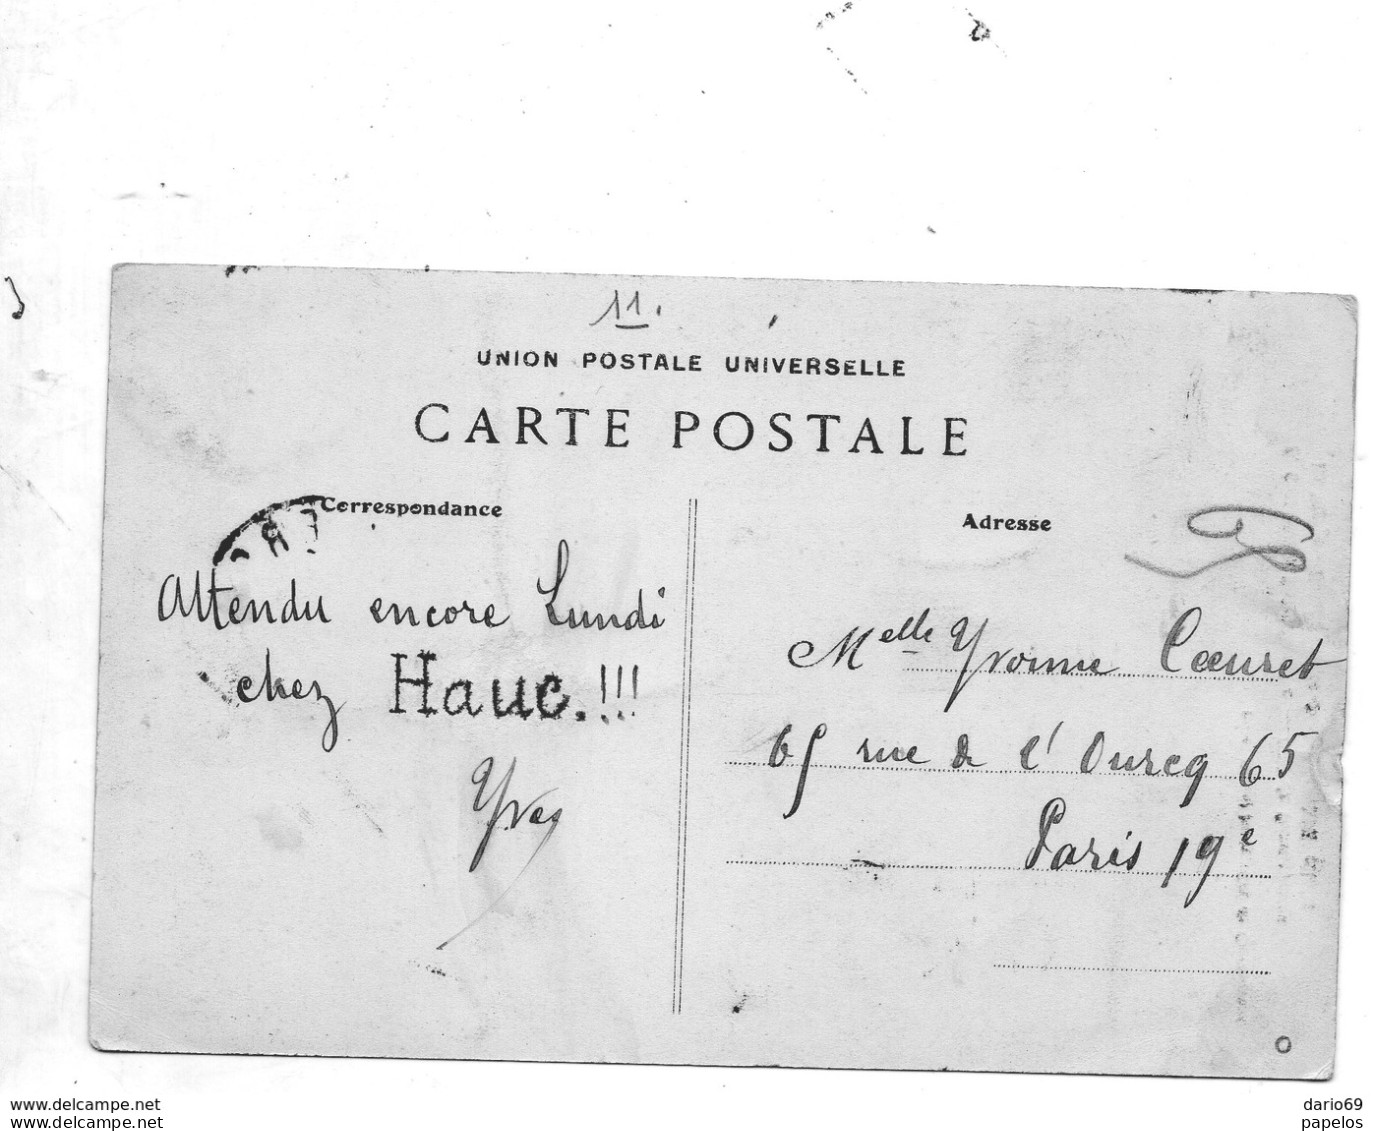 11.
UNION POSTALE UNIVERSELLE
CARTE POSTALE
Correspondance
Attendu encore Lundi
chez Hauc.!!!
Yves
Adresse
Melle Yvonne Cœuret
65 rue de l'Ourcq 65
Paris 19e
www.delcampe.net
www.delcampe.net
dario69
papelos